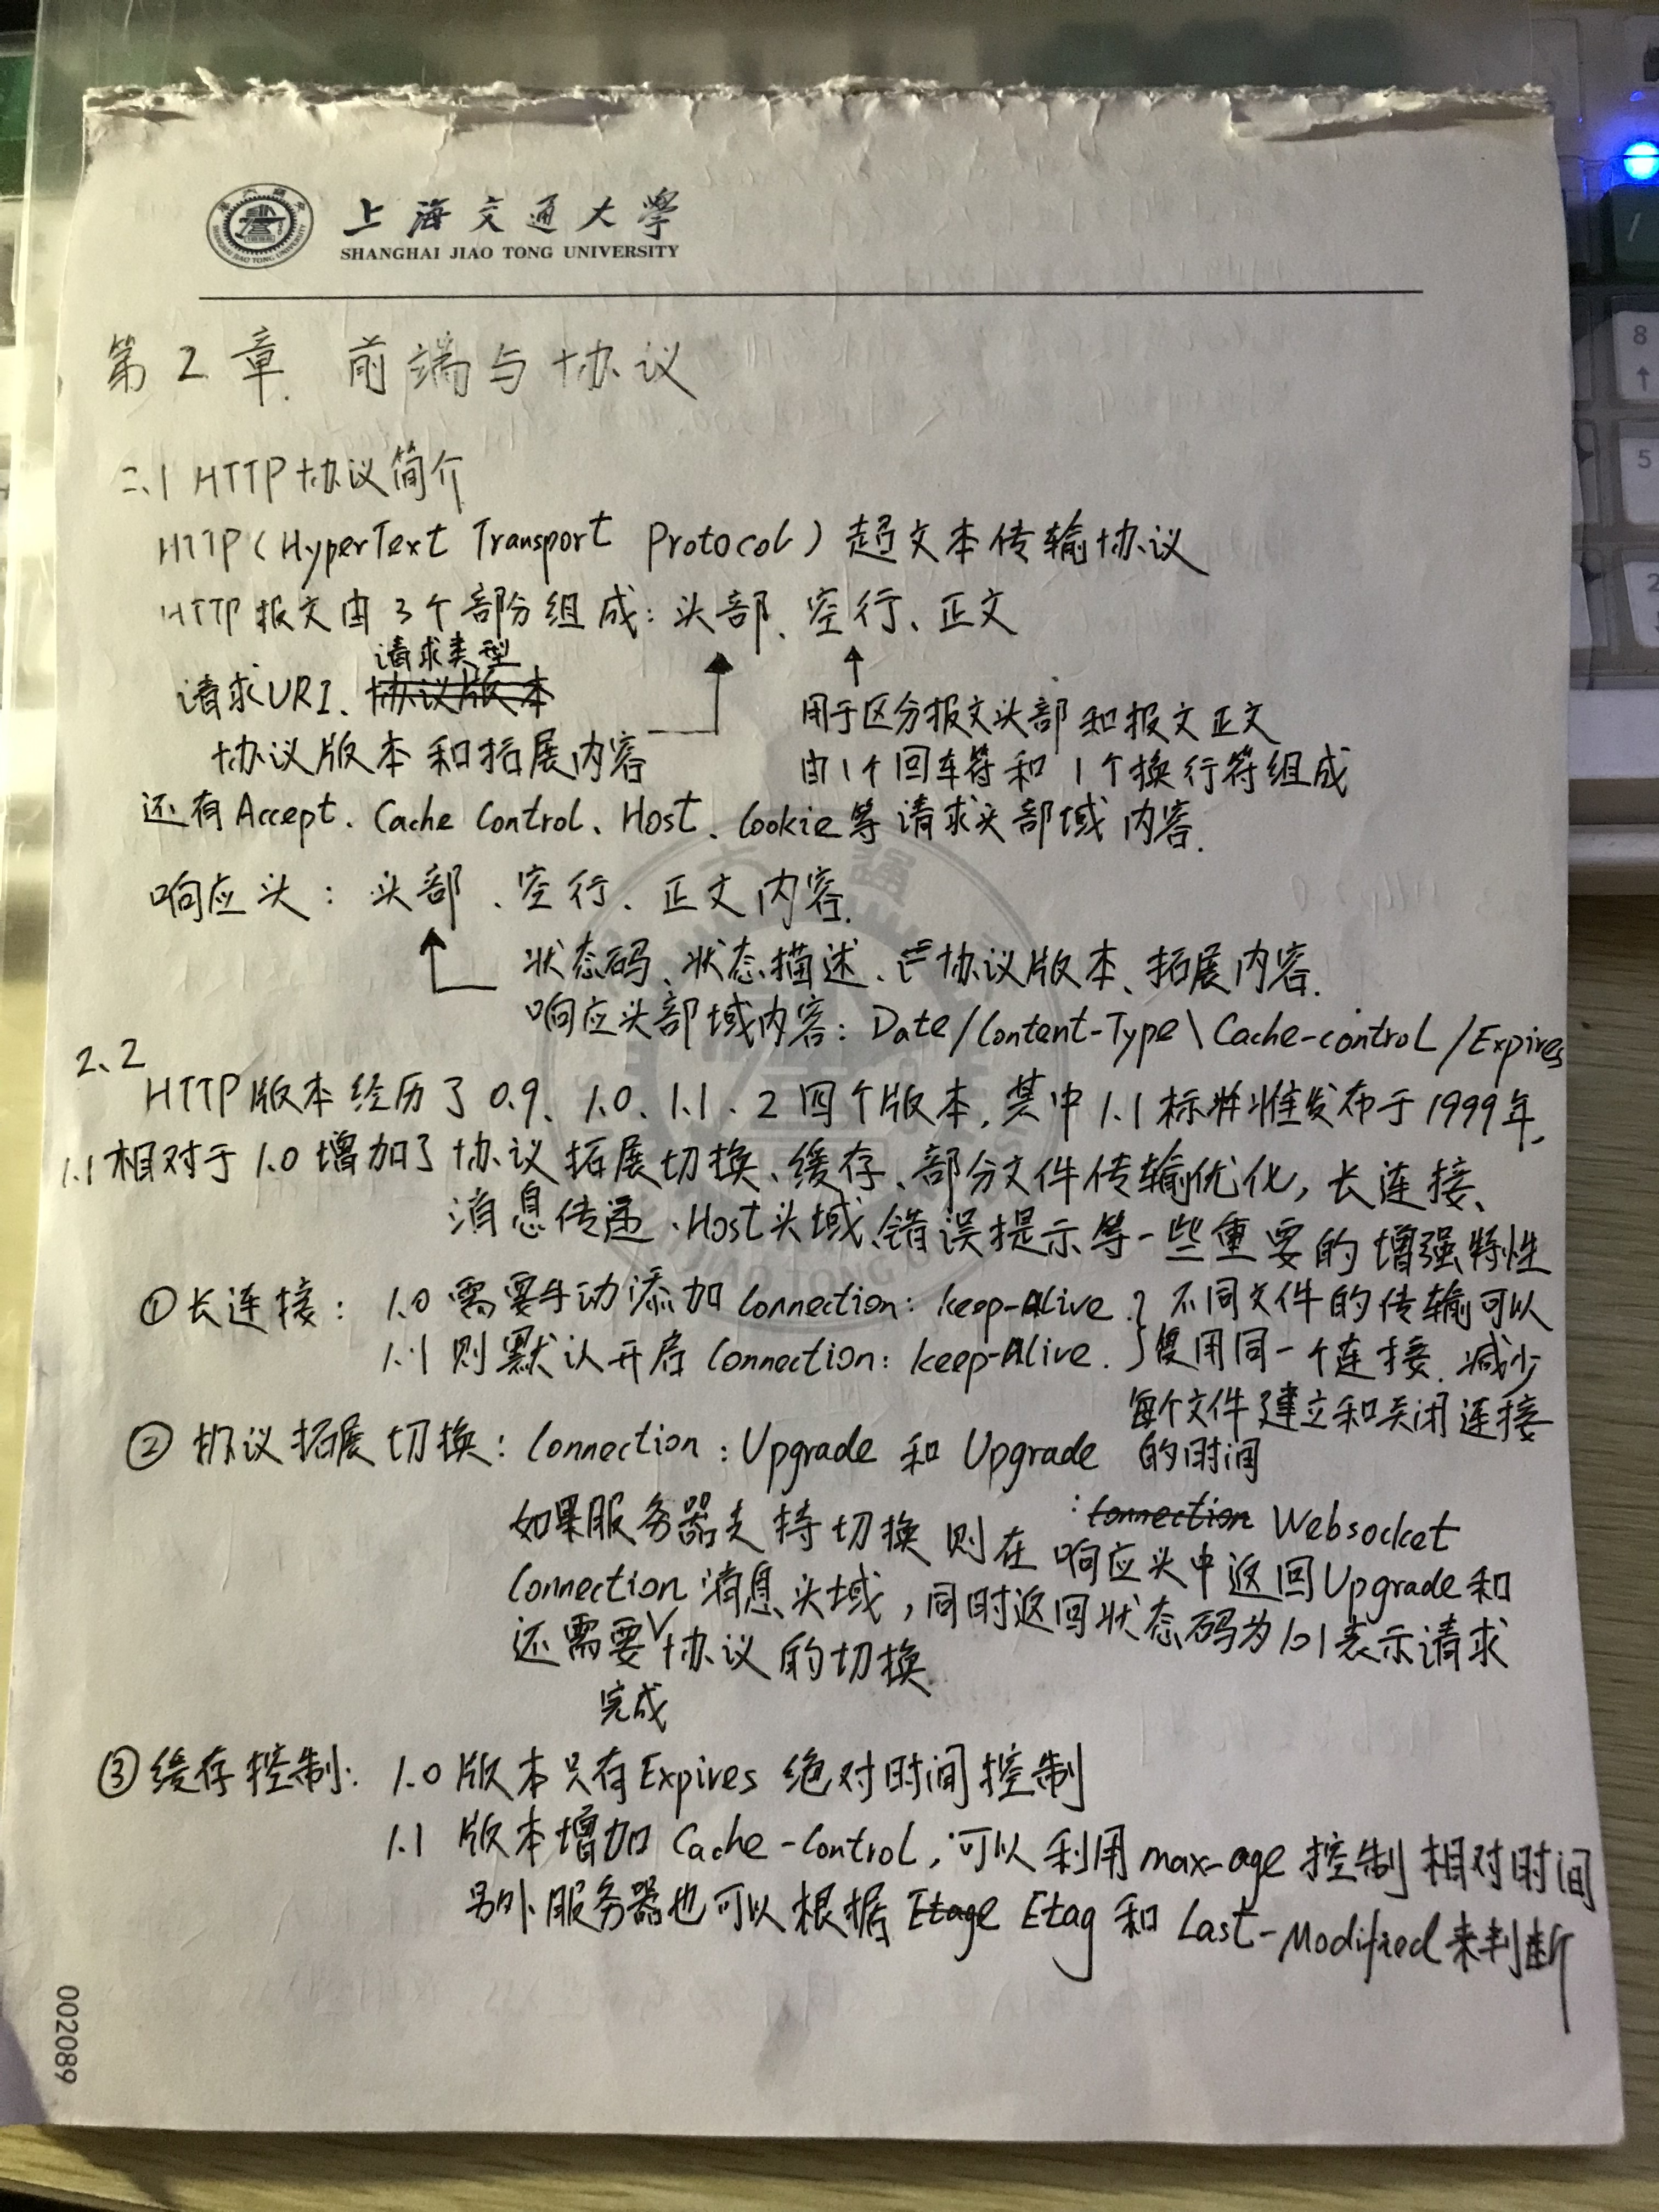 上海交通大學
SHANGHAI JIAO TONG UNIVERSITY
第2章. 前端与协议
二.1 HTTP协议简介
HTTP(HyperText Transport Protocol) 超文本传输协议
HTTP报文由3个部分组成: 头部、空行、正文
请求类型
请求URI、协议版本
协议版本和拓展内容
用于区分报文头部和报文正文
由1个回车符和1个换行符组成
还有Accept、Cache Control、Host、Cookie等请求头部域内容.
响应头: 头部、空行、正文内容.
状态码、状态描述、协议版本、拓展内容.
响应头部域内容: Date/Content-Type\Cache-control/Expires
2、2
HTTP版本经历了0.9、1.0、1.1、2四个版本, 其中1.1标准发布于1999年,
1.1相对于1.0增加了协议拓展切换、缓存、部分文件传输优化, 长连接、
消息传递、Host头域、错误提示等一些重要的增强特性
①长连接: 1.0需要手动添加Connection: keep-Alive. 不同文件的传输可以
1.1则默认开启Connection: keep-Alive. 复用同一个连接. 减少
每个文件建立和关闭连接
的时间
②协议拓展切换: Connection: Upgrade 和 Upgrade
: Connection Websocket
如果服务器支持切换则在响应头中返回Upgrade和
Connection消息头域, 同时返回状态码为101表示请求
还需要协议的切换.
完成
③缓存控制: 1.0版本只有Expires绝对时间控制
1.1 版本增加Cache-Control, 可以利用max-age控制相对时间
另外服务器也可以根据Etage Etag和Last-Modified来判断
002089